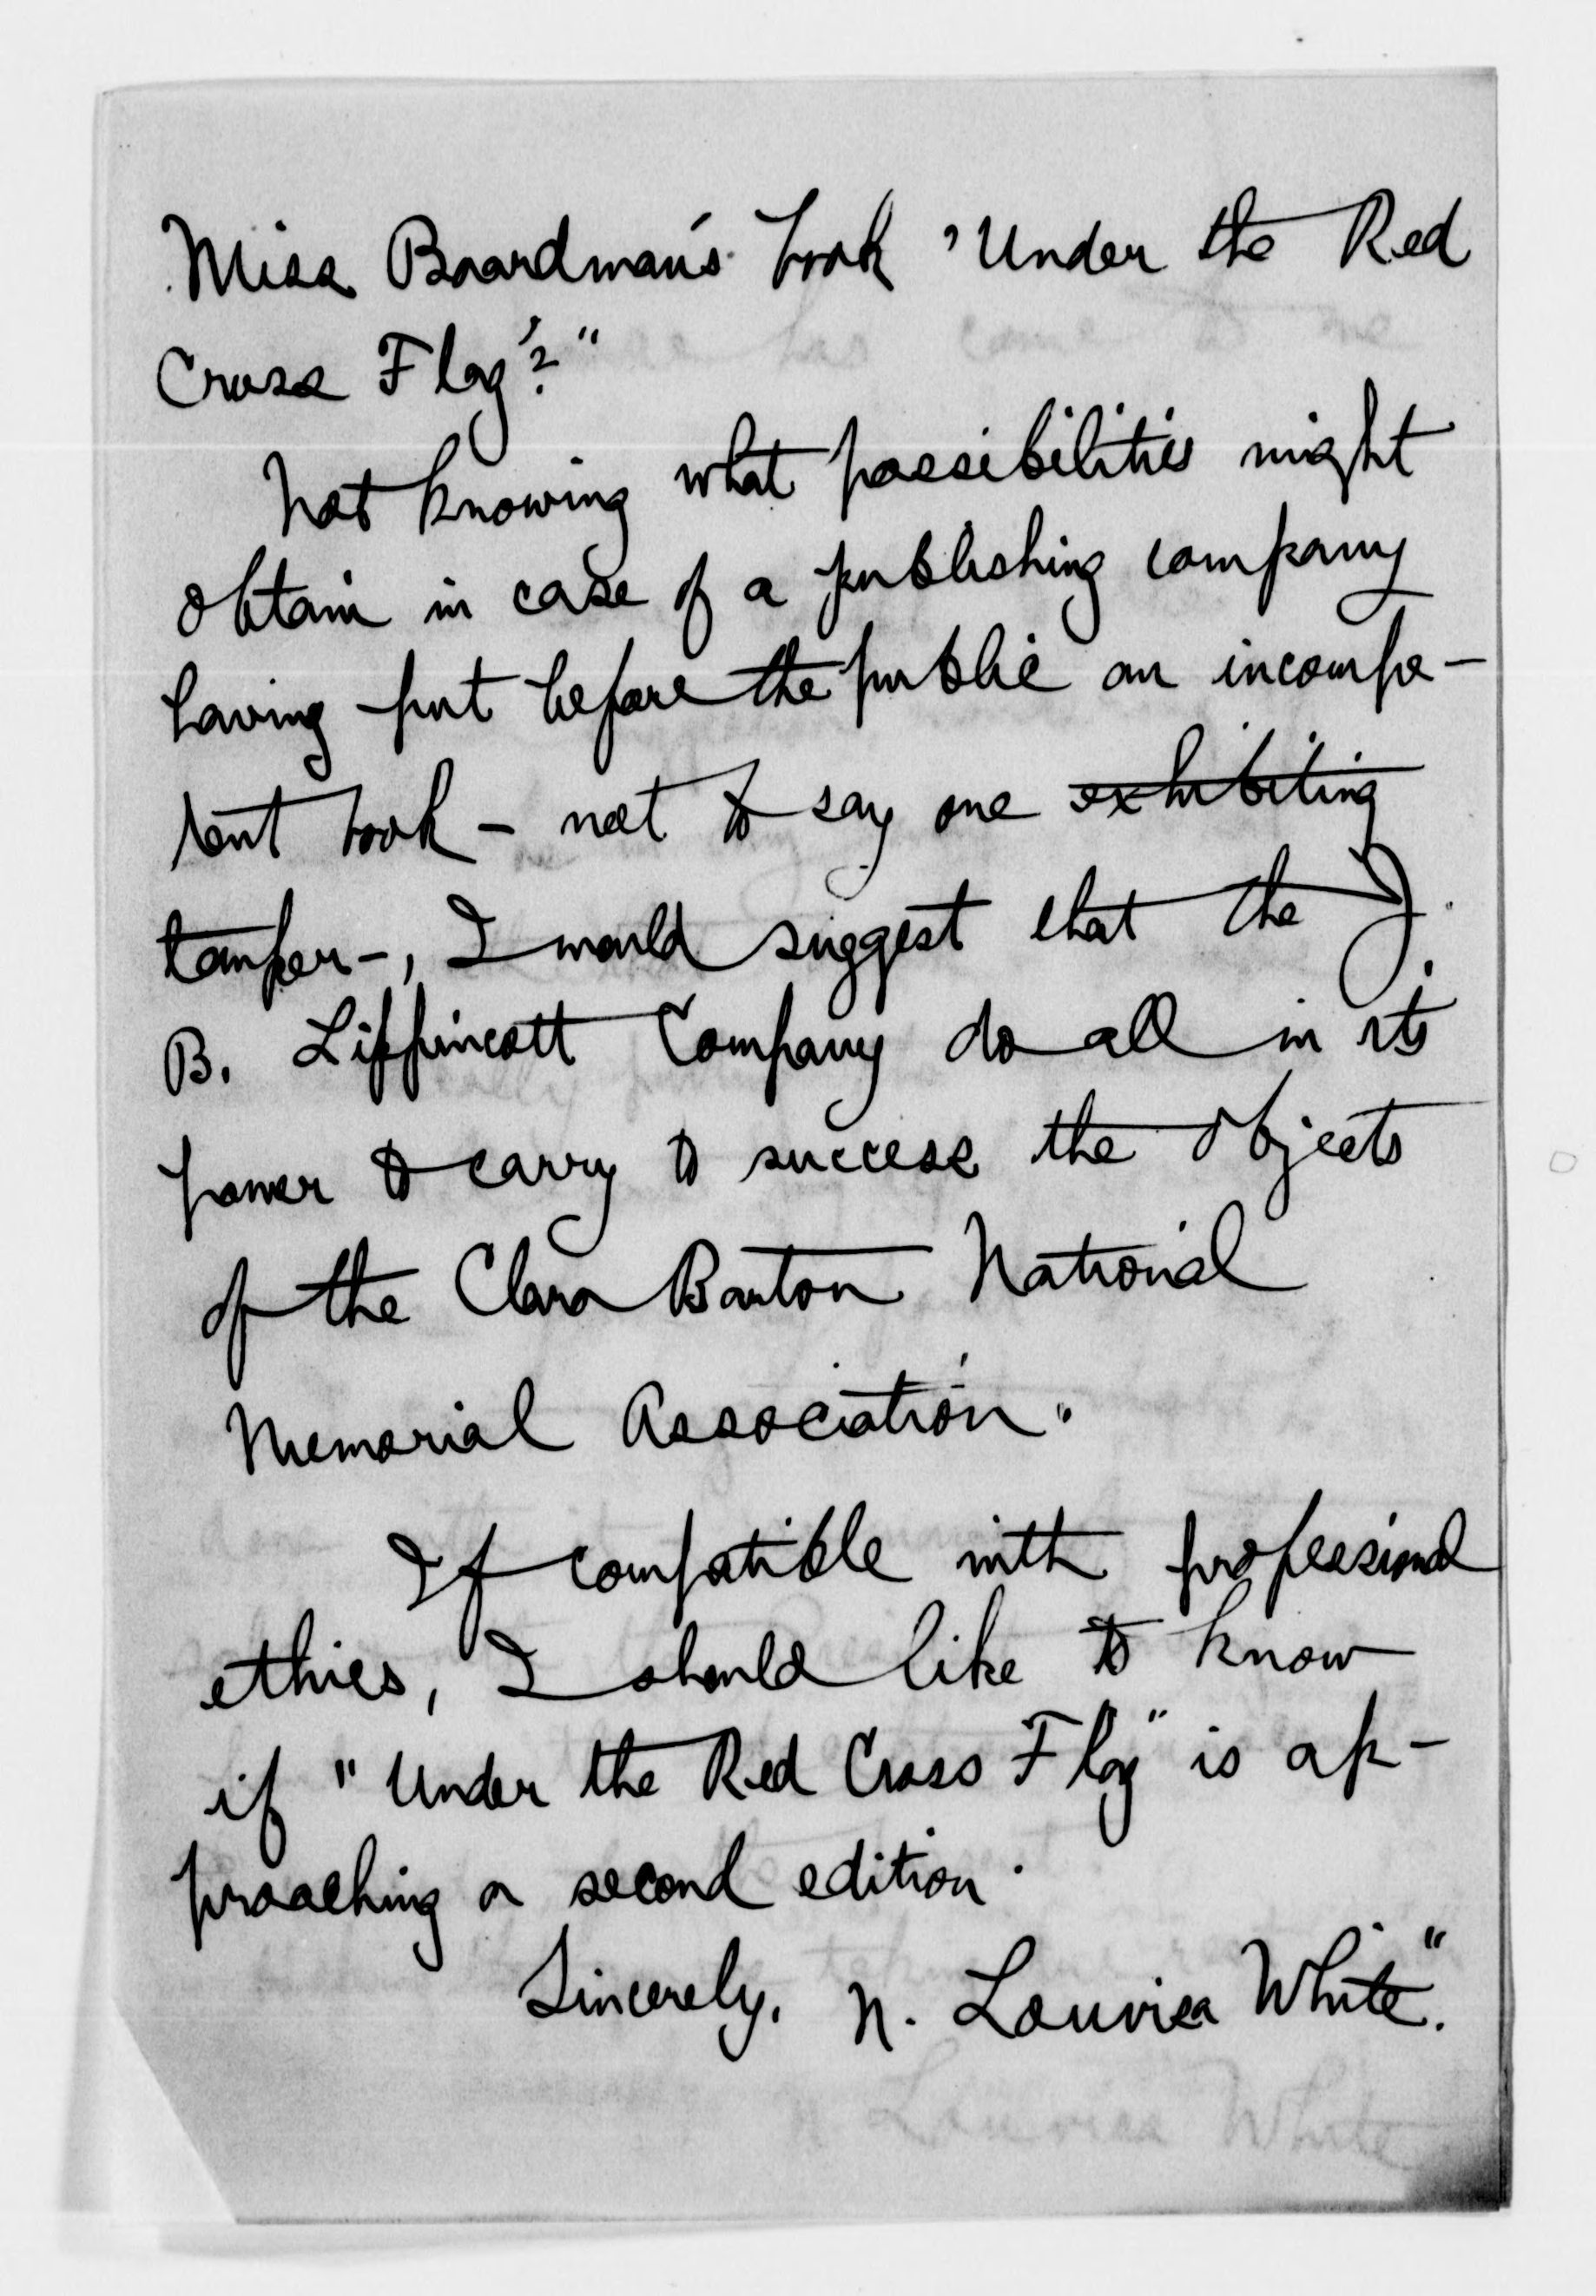 Miss Boardman's book 'Under the Red
Cross Flag'?"
Not knowing what possibilities might
obtain in case of a publishing company
having put before the public an incompe-
tent book - not to say one exhibiting
temper-, I would suggest that the J.
B. Lippincott Company do all in its
power to carry to success the objects
of the Clara Barton National
Memorial Association."
If compatible with professional
ethics, I should like to know
if "Under the Red Cross Flag" is ap-
proaching a second edition.
Sincerely, N. Louvisa White."